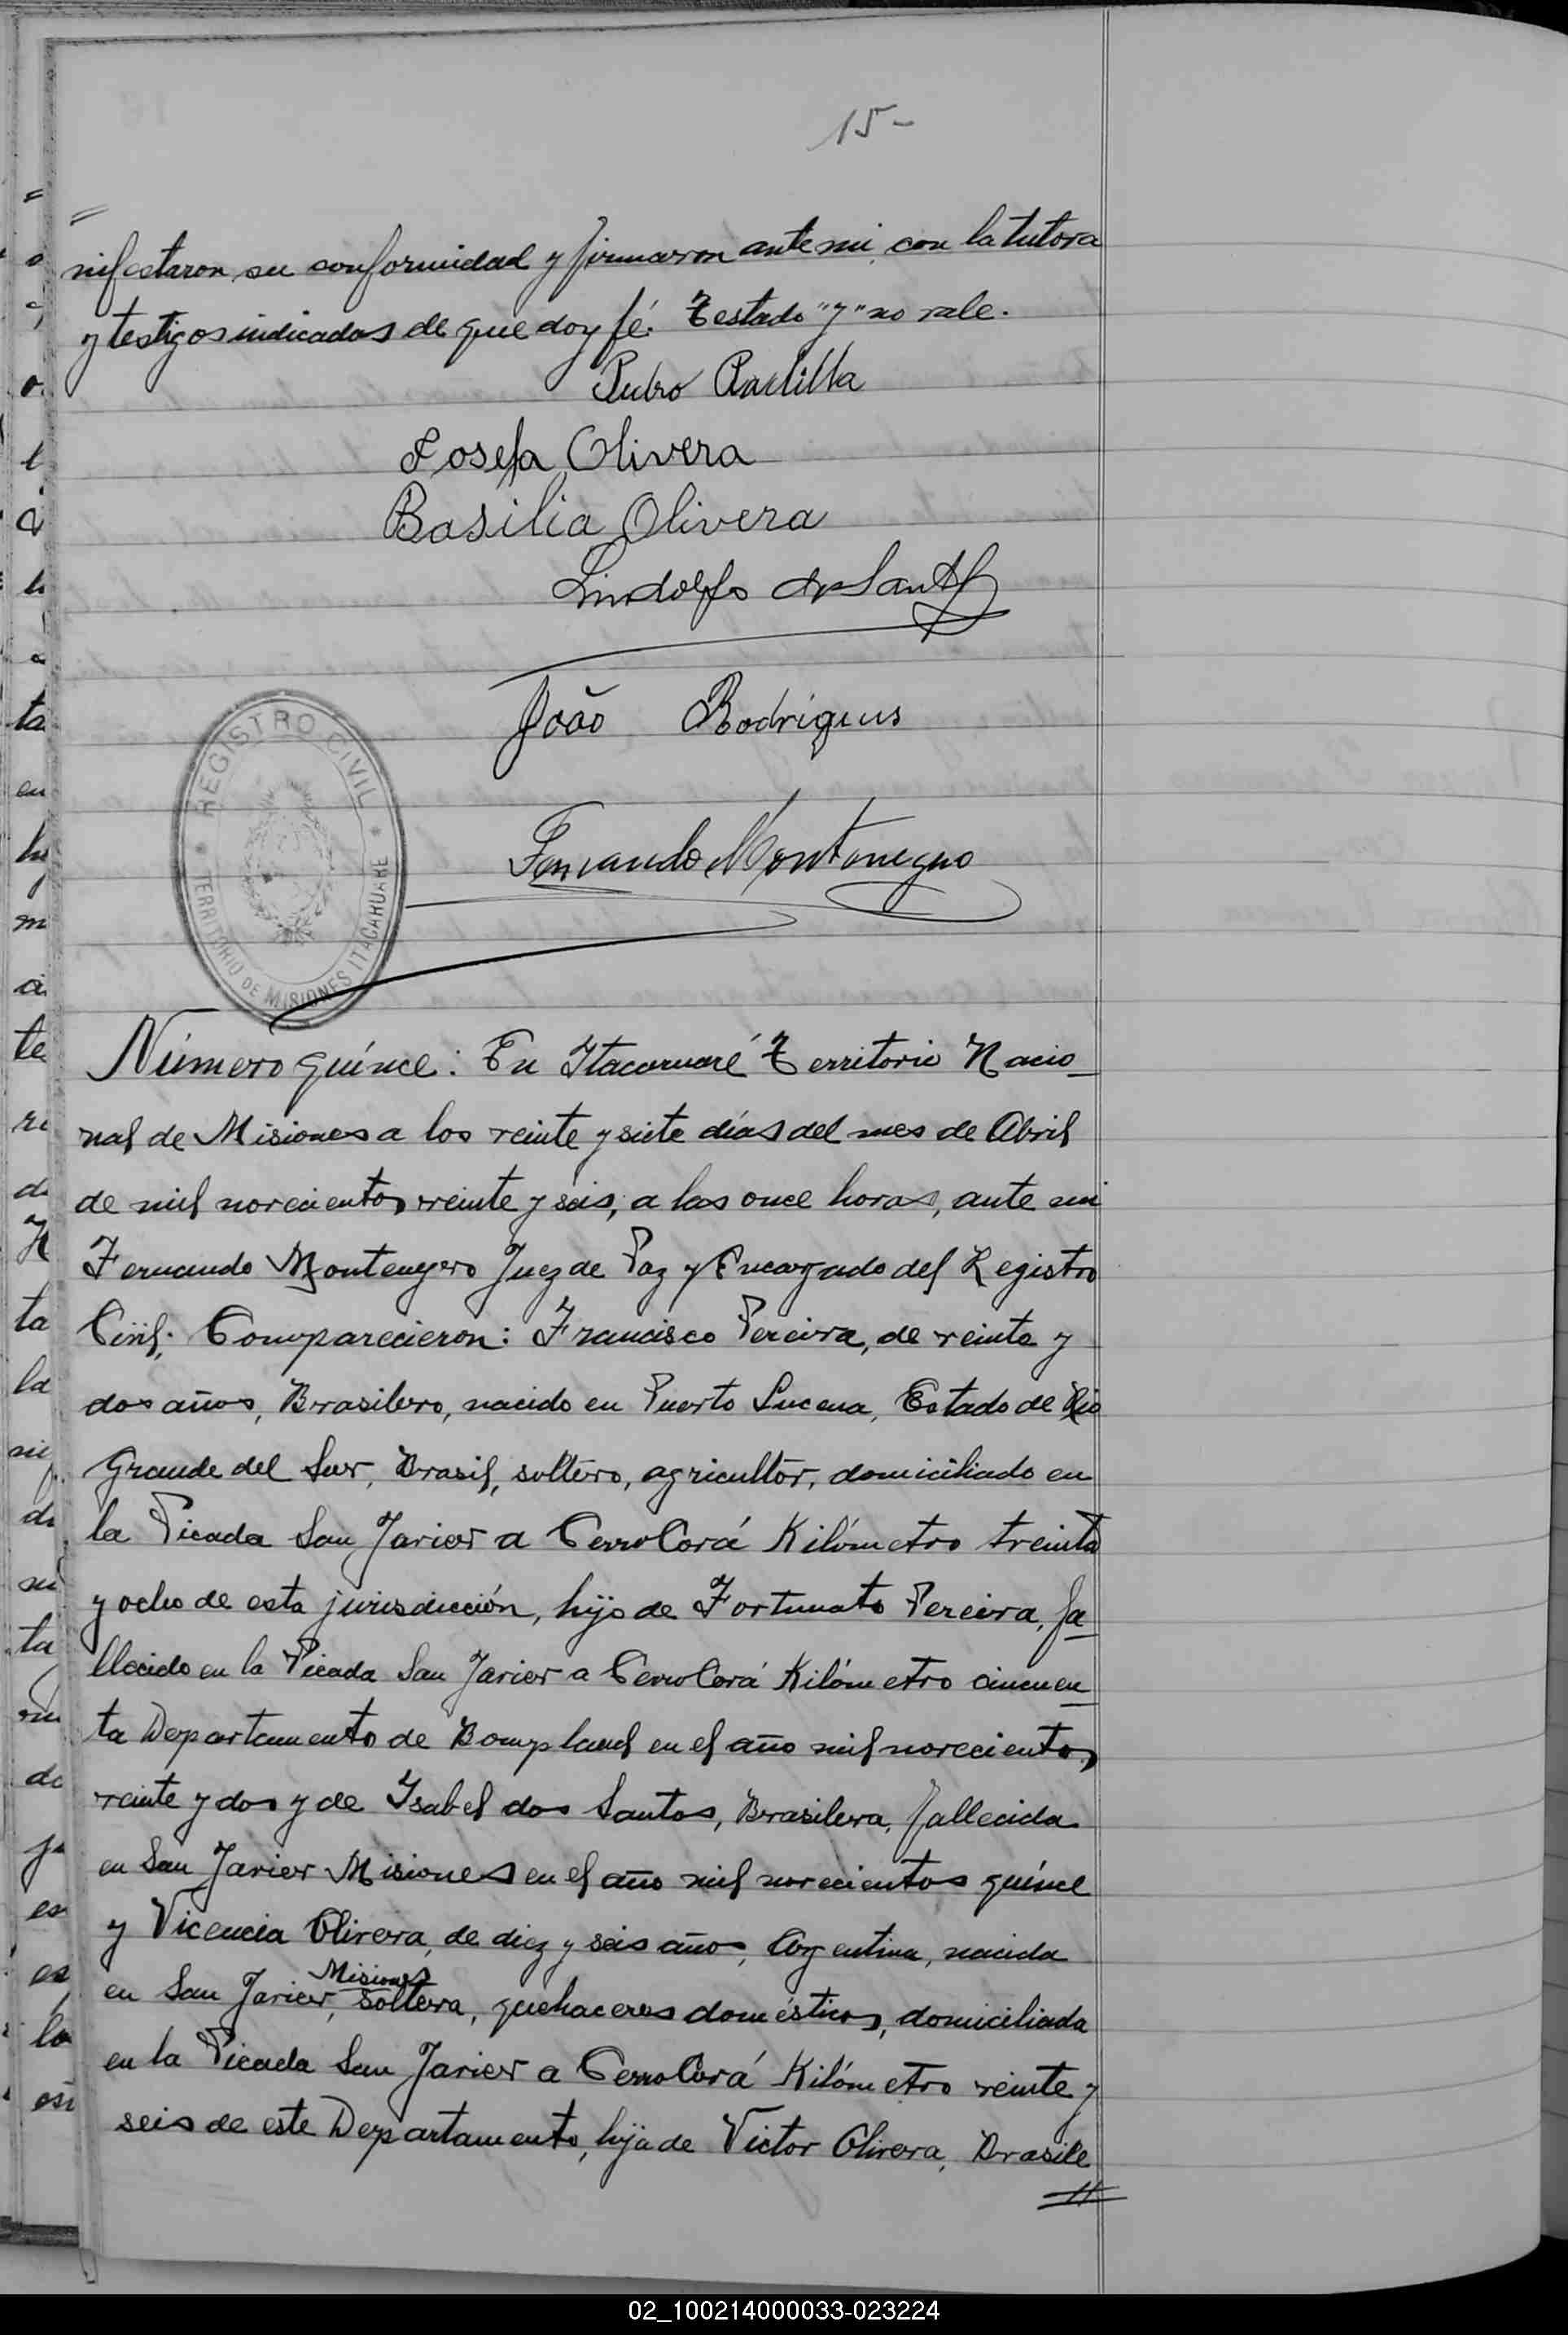 15-
nifestaron su conformidad y firmaron ante mi, con la tutora
y testigos indicados de que doy fé. Testado "y" no vale.
Pedro Padilla
Josefa Olivera
Basilia Olivera
Lindolfo
João Rodrigues
REGISTRO CIVIL
TERRITORIO DE MISIONES ITACARUARE
Fernando Montenegro
Número quínce: En Itacaruaré Territorio Nacio_
nal de Misiones a los veinte y siete días del mes de Abril
de mil novecientos veinte y seis, a las once horas, ante mi
Fernando Montenegro Juez de Paz y Encargado del Registro
Civil. Comparecieron: Francisco Pereira, de veinte y
dos años, Brasilero, nacido en Puerto Lucena, Estado de Rio
Grande del Sur, Brasil, soltero, agricultor, domiciliado en
la Picada San Javier a Cerro Corá Kilómetro treinta
y ocho de esta jurisdicción, hijo de Fortunato Pereira, fa_
llecido en la Picada San Javier a Cerro Corá Kilómetro cincuen_
ta Departamento de Bompland en el año mil novecientos
veinte y dos y de Isabel dos Santos, Brasilera, fallecida
en San Javier Misiones en el año mil novecientos quínce
y Vicencia Olivera, de diez y seis años, Argentina, nacida
Misiones
en San Javier, soltera, quehaceres domésticos, domiciliada
en la Picada San Javier a Cerro Corá Kilómetro veinte y
seis de este Departamento, hija de Victor Olivera, Brasile
02_100214000033-023224